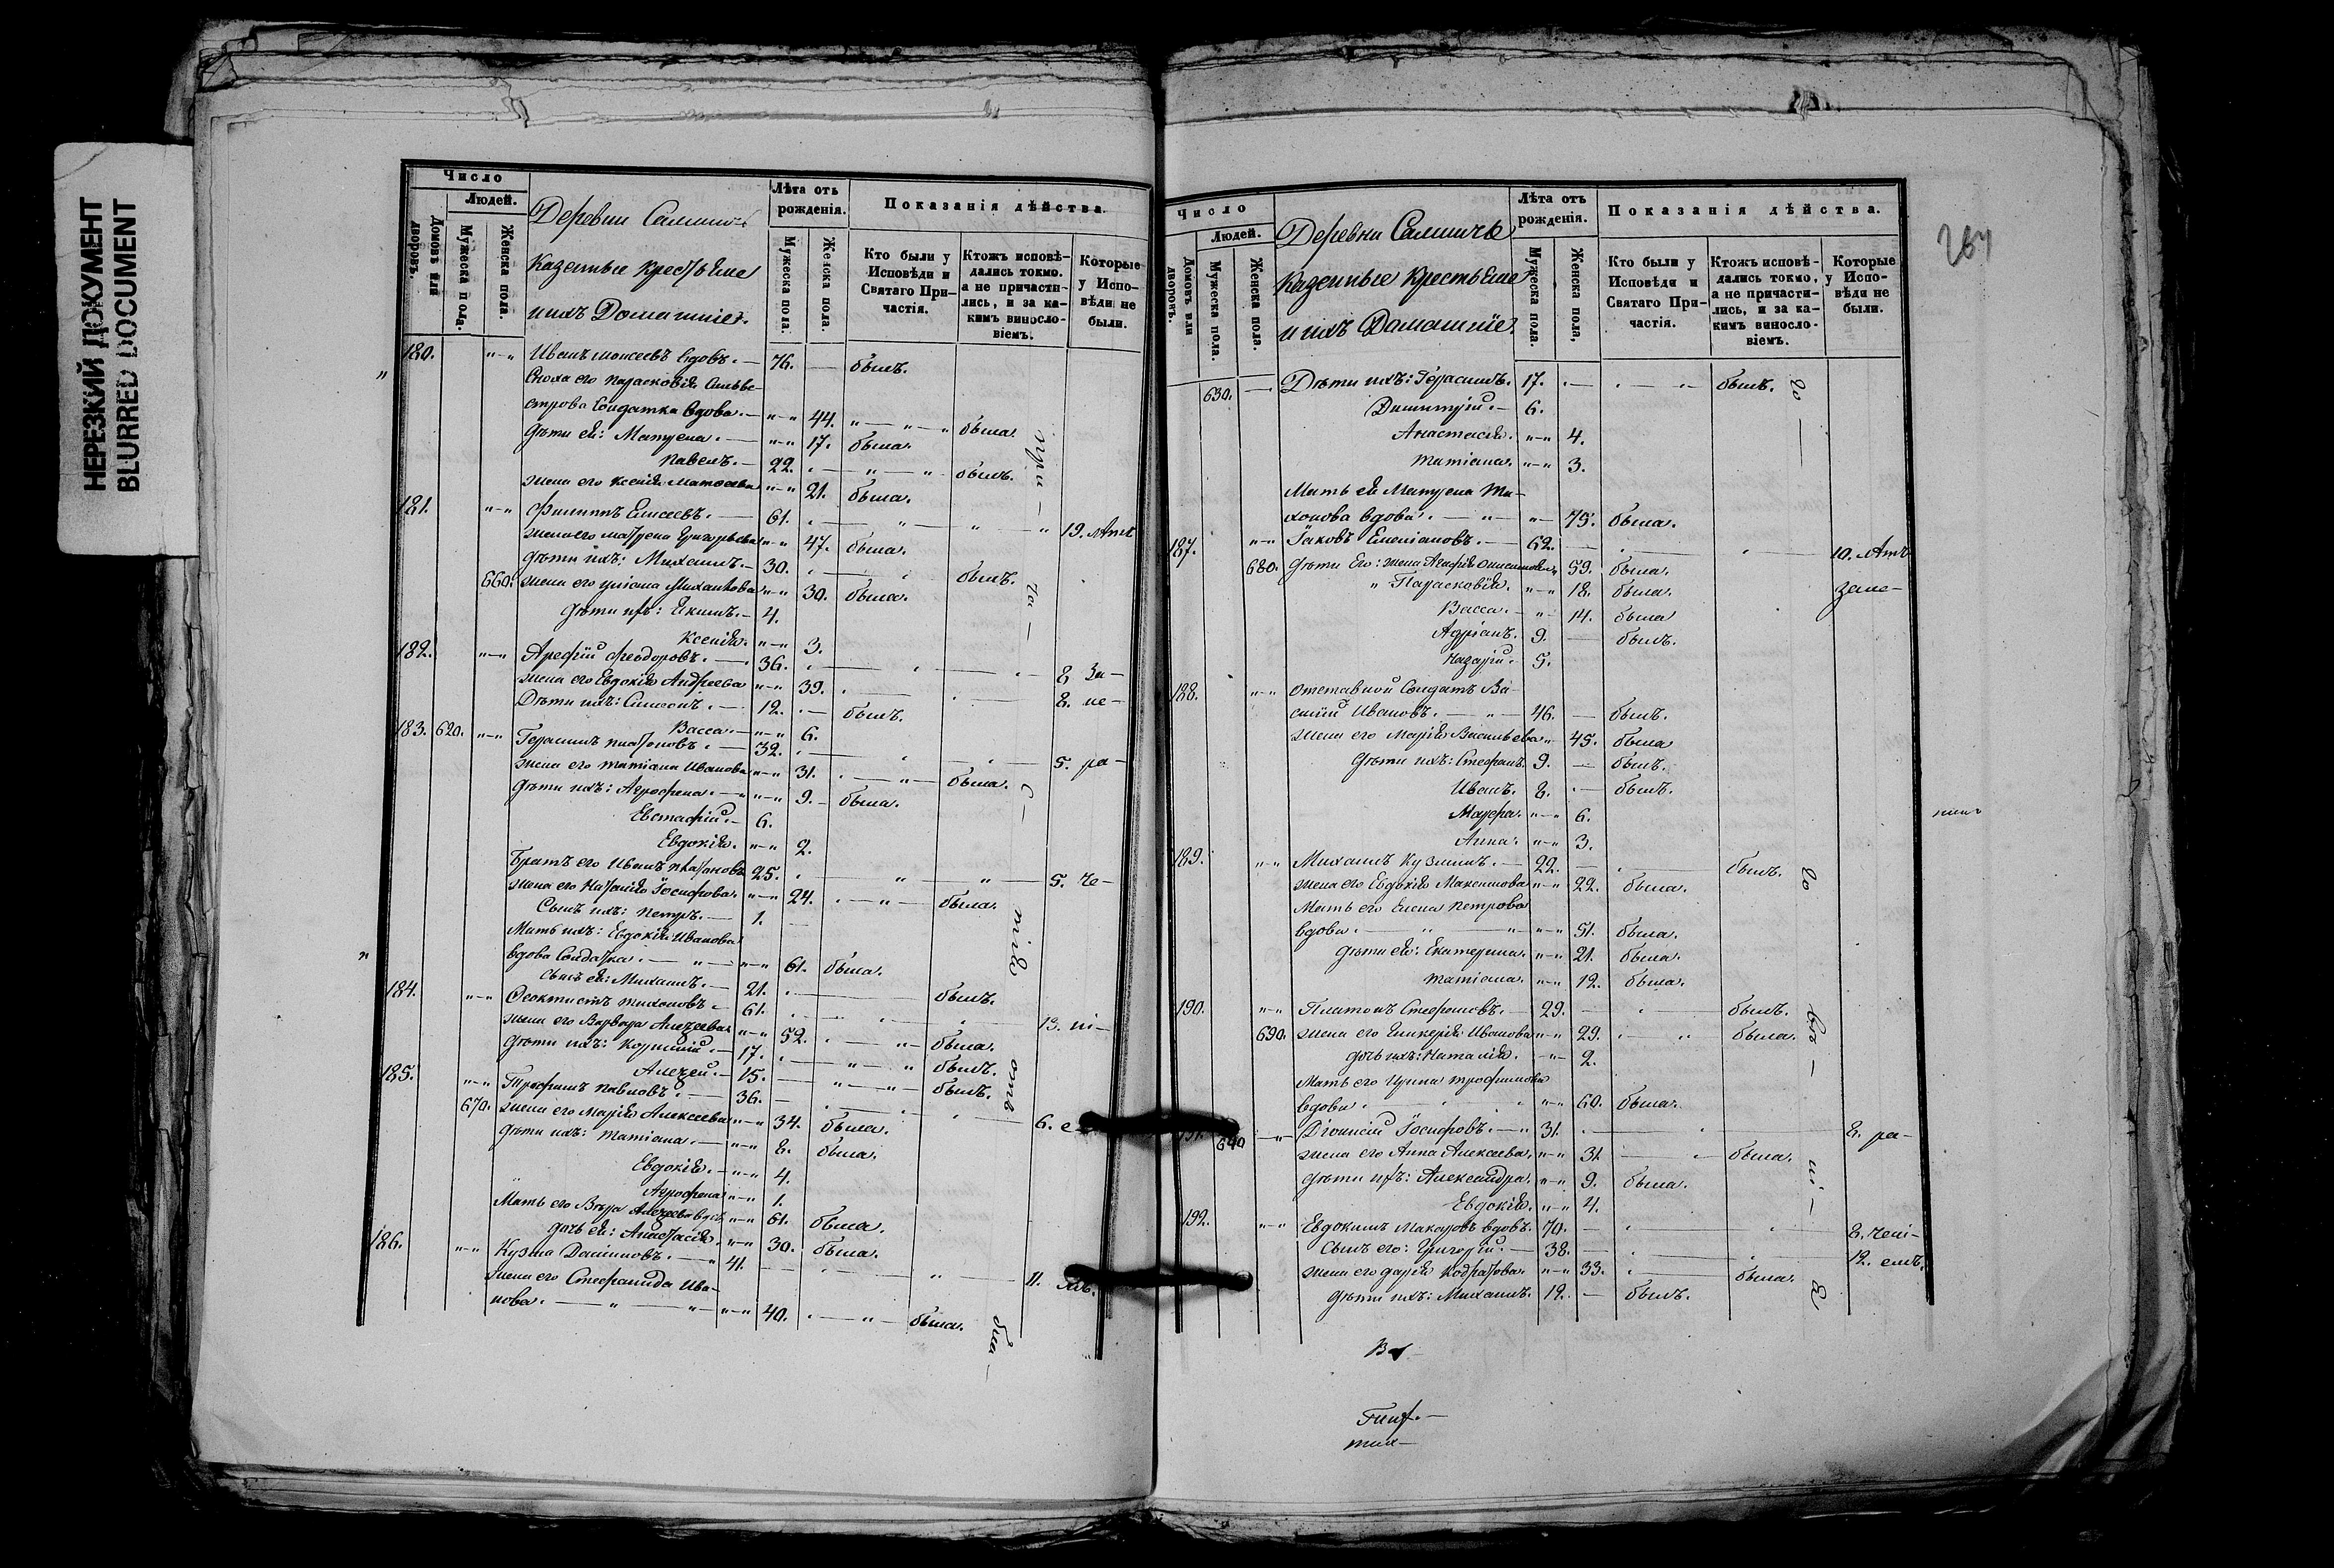 НЕРЕЗКИЙ ДОКУМЕНТ
BLURRED DOCUMENT
Число
Людей.
Домовъ или дворовъ.
Мужеска пола.
Женска пола.
Деревни
Казенные Крестьяне
и ихъ Домашніе.
Лѣта отъ рожденія.
Мужеска пола.
Женска пола.
Показанія дѣйства.
Кто были у Исповѣди и Святаго Причастія.
Ктожъ исповѣдались токмо, а не причастились, и за какимъ винословіемъ.
Которые у Исповѣди не были.
180. Иванъ Моисеевъ вдовъ. 76. былъ.
Сноха его Парасковія Сильвестрова Солдатка вдова. 44. была.
Дѣти ея: Матрена. 17. была.
Павелъ. 22. былъ.
жена его Ксенія 21. была.
181. Филиппъ Елисеевъ. 61. 19. лѣтъ
жена его Матрена Григорьева 47. была.
Дѣти ихъ: Михаилъ. 30. былъ.
660. жена его Михайлова 30. была.
Дѣти ихъ: 4.
Ксенія. 3.
182. Арефій Феодоровъ. 36. 8 за-
жена его Евдокія Андреева 39. 8. не-
Дѣти ихъ: Симеонъ. 12. былъ.
Васса. 6.
183. 620. Герасимъ Платоновъ. 32. 5. ра-
жена его Татіана Иванова 31. была.
Дѣти ихъ: Агрофена. 9. была.
Евстафій. 6.
Евдокія. 2.
Братъ его Иванъ Платоновъ 25. 5. че-
жена его Наталія Іосифова. 24. была.
Сынъ ихъ: Петръ. 1.
Мать ихъ: Евдокія Иванова
вдова Солдатка. 61. была.
Сынъ ея: Михаилъ. 21. былъ.
184. Феоктистъ Тихоновъ. 61. 13. ні-
жена его Варвара Алексеева 52. была.
Дѣти ихъ: Корнилій. 17. былъ.
Алексей. 15. былъ.
185. Трофимъ Павловъ. 36. 6. е-
670. жена его Марія Алексеева 34. была.
Дѣти ихъ: Татіана. 8. была.
Евдокія. 4.
Агрофена 1.
Мать его Вѣра вдова 61. была.
дочь ея: Анастасія. 30. была.
186. Кузма 41. 11.
жена его Стефанида Иванова. 40. была.
при-
ча-
с-
тія
отъ
бла-
Число
Людей.
Домовъ или дворовъ.
Мужеска пола.
Женска пола.
Деревни
Казенные Крестьяне
и ихъ Домашніе
Лѣта отъ рожденія.
Мужеска пола.
Женска пола,
Показанія дѣйства.
Кто были у Исповѣди и Святаго Причастія.
Ктожъ исповѣдались токмо, а не причастились, и за какимъ винословіемъ.
Которые у Исповѣди не были.
264
630. Дѣти ихъ: Герасимъ. 17. былъ.
Димитрій. 6.
Анастасія. 4.
Татіана. 3.
Мать ея Матрена Тихонова вдова. 75. была.
187. Іаковъ Емеліановъ. 62. 10. лѣтъ
680. Дѣти Его: жена Агафія 59. была.
Парасковія. 18. была. заме-
Васса. 14. была
Адріанъ. 9. былъ.
Назарій. 5.
188. Отставной Солдатъ Василій Ивановъ. 46. былъ.
жена его Марія Васильева 45. была
Дѣти ихъ: Стефанъ. 9. былъ.
Иванъ. 8. былъ.
Марфа. 6.
Анна. 3.
189. Михаилъ Кузминъ. 22. былъ.
жена его Евдокія Максимова 22. была.
Мать его Елена Петрова
вдова. 51. была.
Дѣти ея: Екатерина. 21. была.
Татіана. 12. была.
190. Платонъ Стефановъ. 29. былъ.
690. жена его Гликерія Иванова 29. была.
дочь ихъ: Наталія. 2.
Мать его Ирина Трофимова
вдова. 60. была.
191. 640 Діонисій Іосифовъ. 31. 8. ра-
жена его Анна Алексеева. 31. была.
Дѣти ихъ: Александра. 9. была.
Евдокія. 4.
192. Евдокимъ Макаровъ вдовъ. 70. 8. чені-
Сынъ его: Григорій. 38. 12. емъ.
жена его Дарія Кодратова. 33. была.
Дѣти ихъ: Михаилъ. 12. былъ.
го-
го
вѣ-
ні-
я